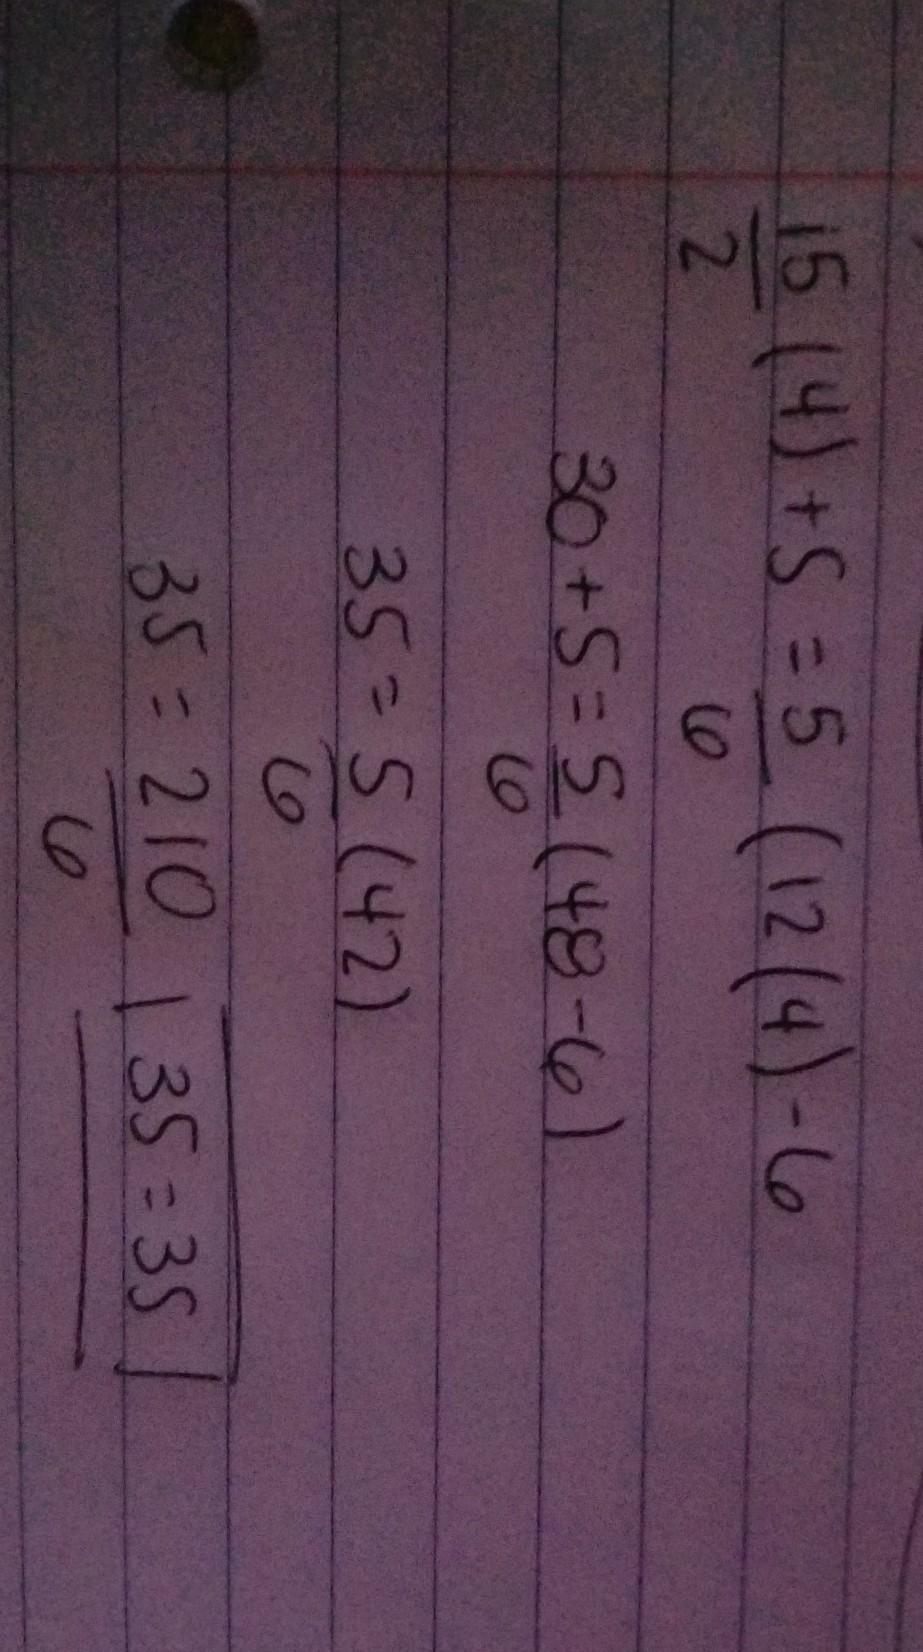 15/2 (4) + 5 = 5/6 (12(4) - 6
30 + 5 = 5/6 (48 - 6)
35 = 5/6 (42)
35 = 210/6 | 35 = 35 |